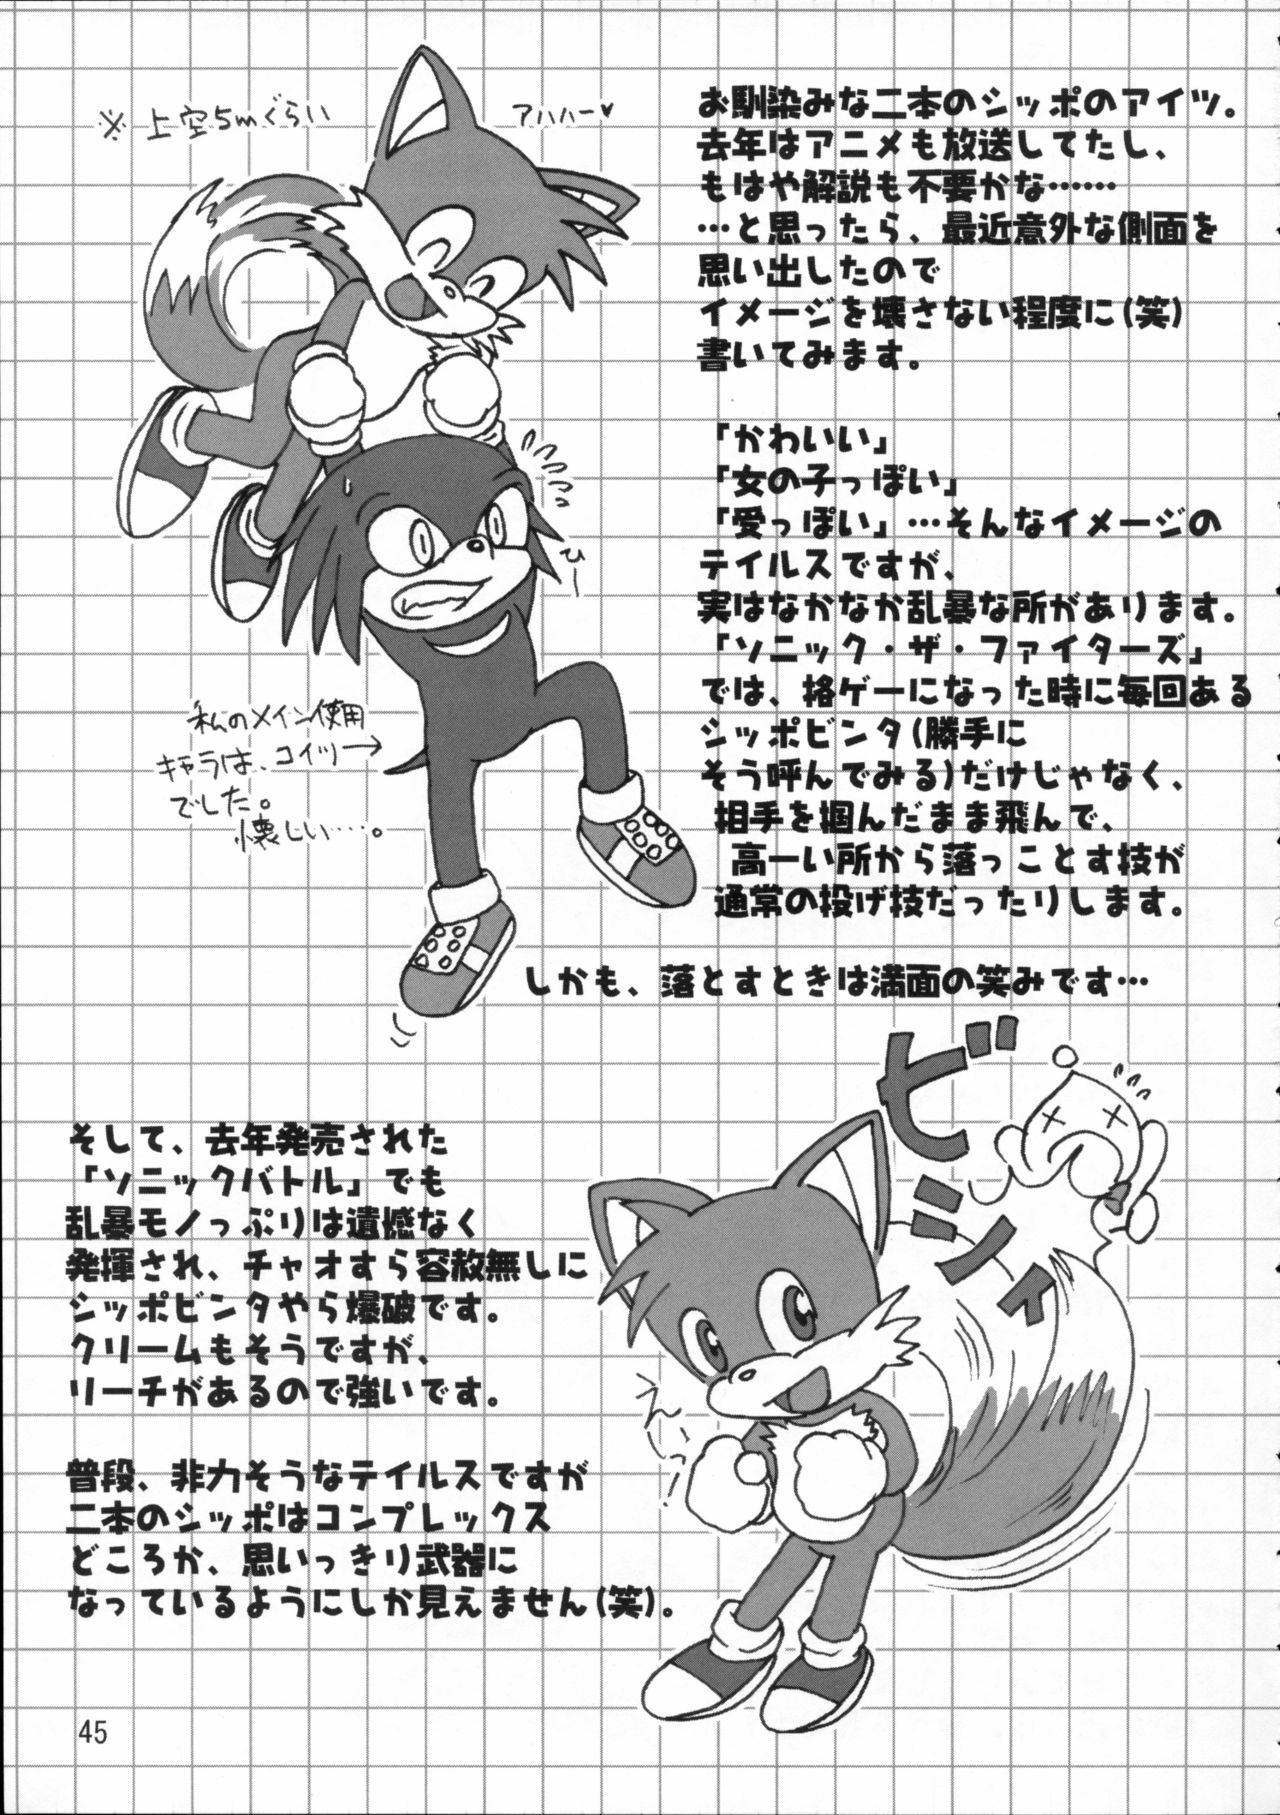 ※上空5mぐらい
アハハー♥
お馴染みな二本のシッポのアイツ。
去年はアニメも放送してたし、
もはや解説も不要かな……
…と思ったら、最近意外な側面を
思い出したので
イメージを壊さない程度に(笑)
書いてみます。
「かわいい」
「女の子っぽい」
「受っぽい」…そんなイメージの
テイルスですが、
実はなかなか乱暴な所があります。
「ソニック・ザ・ファイターズ」
では、格ゲーになった時に毎回ある
シッポビンタ(勝手に
そう呼んでみる)だけじゃなく、
相手を掴んだまま飛んで、
高ーい所から落っことす技が
通常の投げ技だったりします。
しかも、落とすときは満面の笑みです…
ひー
私のメイン使用
キャラは、コイツ→
でした。
懐しい…。
ビシィ
そして、去年発売された
「ソニックバトル」でも
乱暴モノっぷりは遺憾なく
発揮され、チャオすら容赦無しに
シッポビンタやら爆破です。
クリームもそうですが、
リーチがあるので強いです。
普段、非力そうなテイルスですが
二本のシッポはコンプレックス
どころか、思いっきり武器に
なっているようにしか見えません(笑)。
45